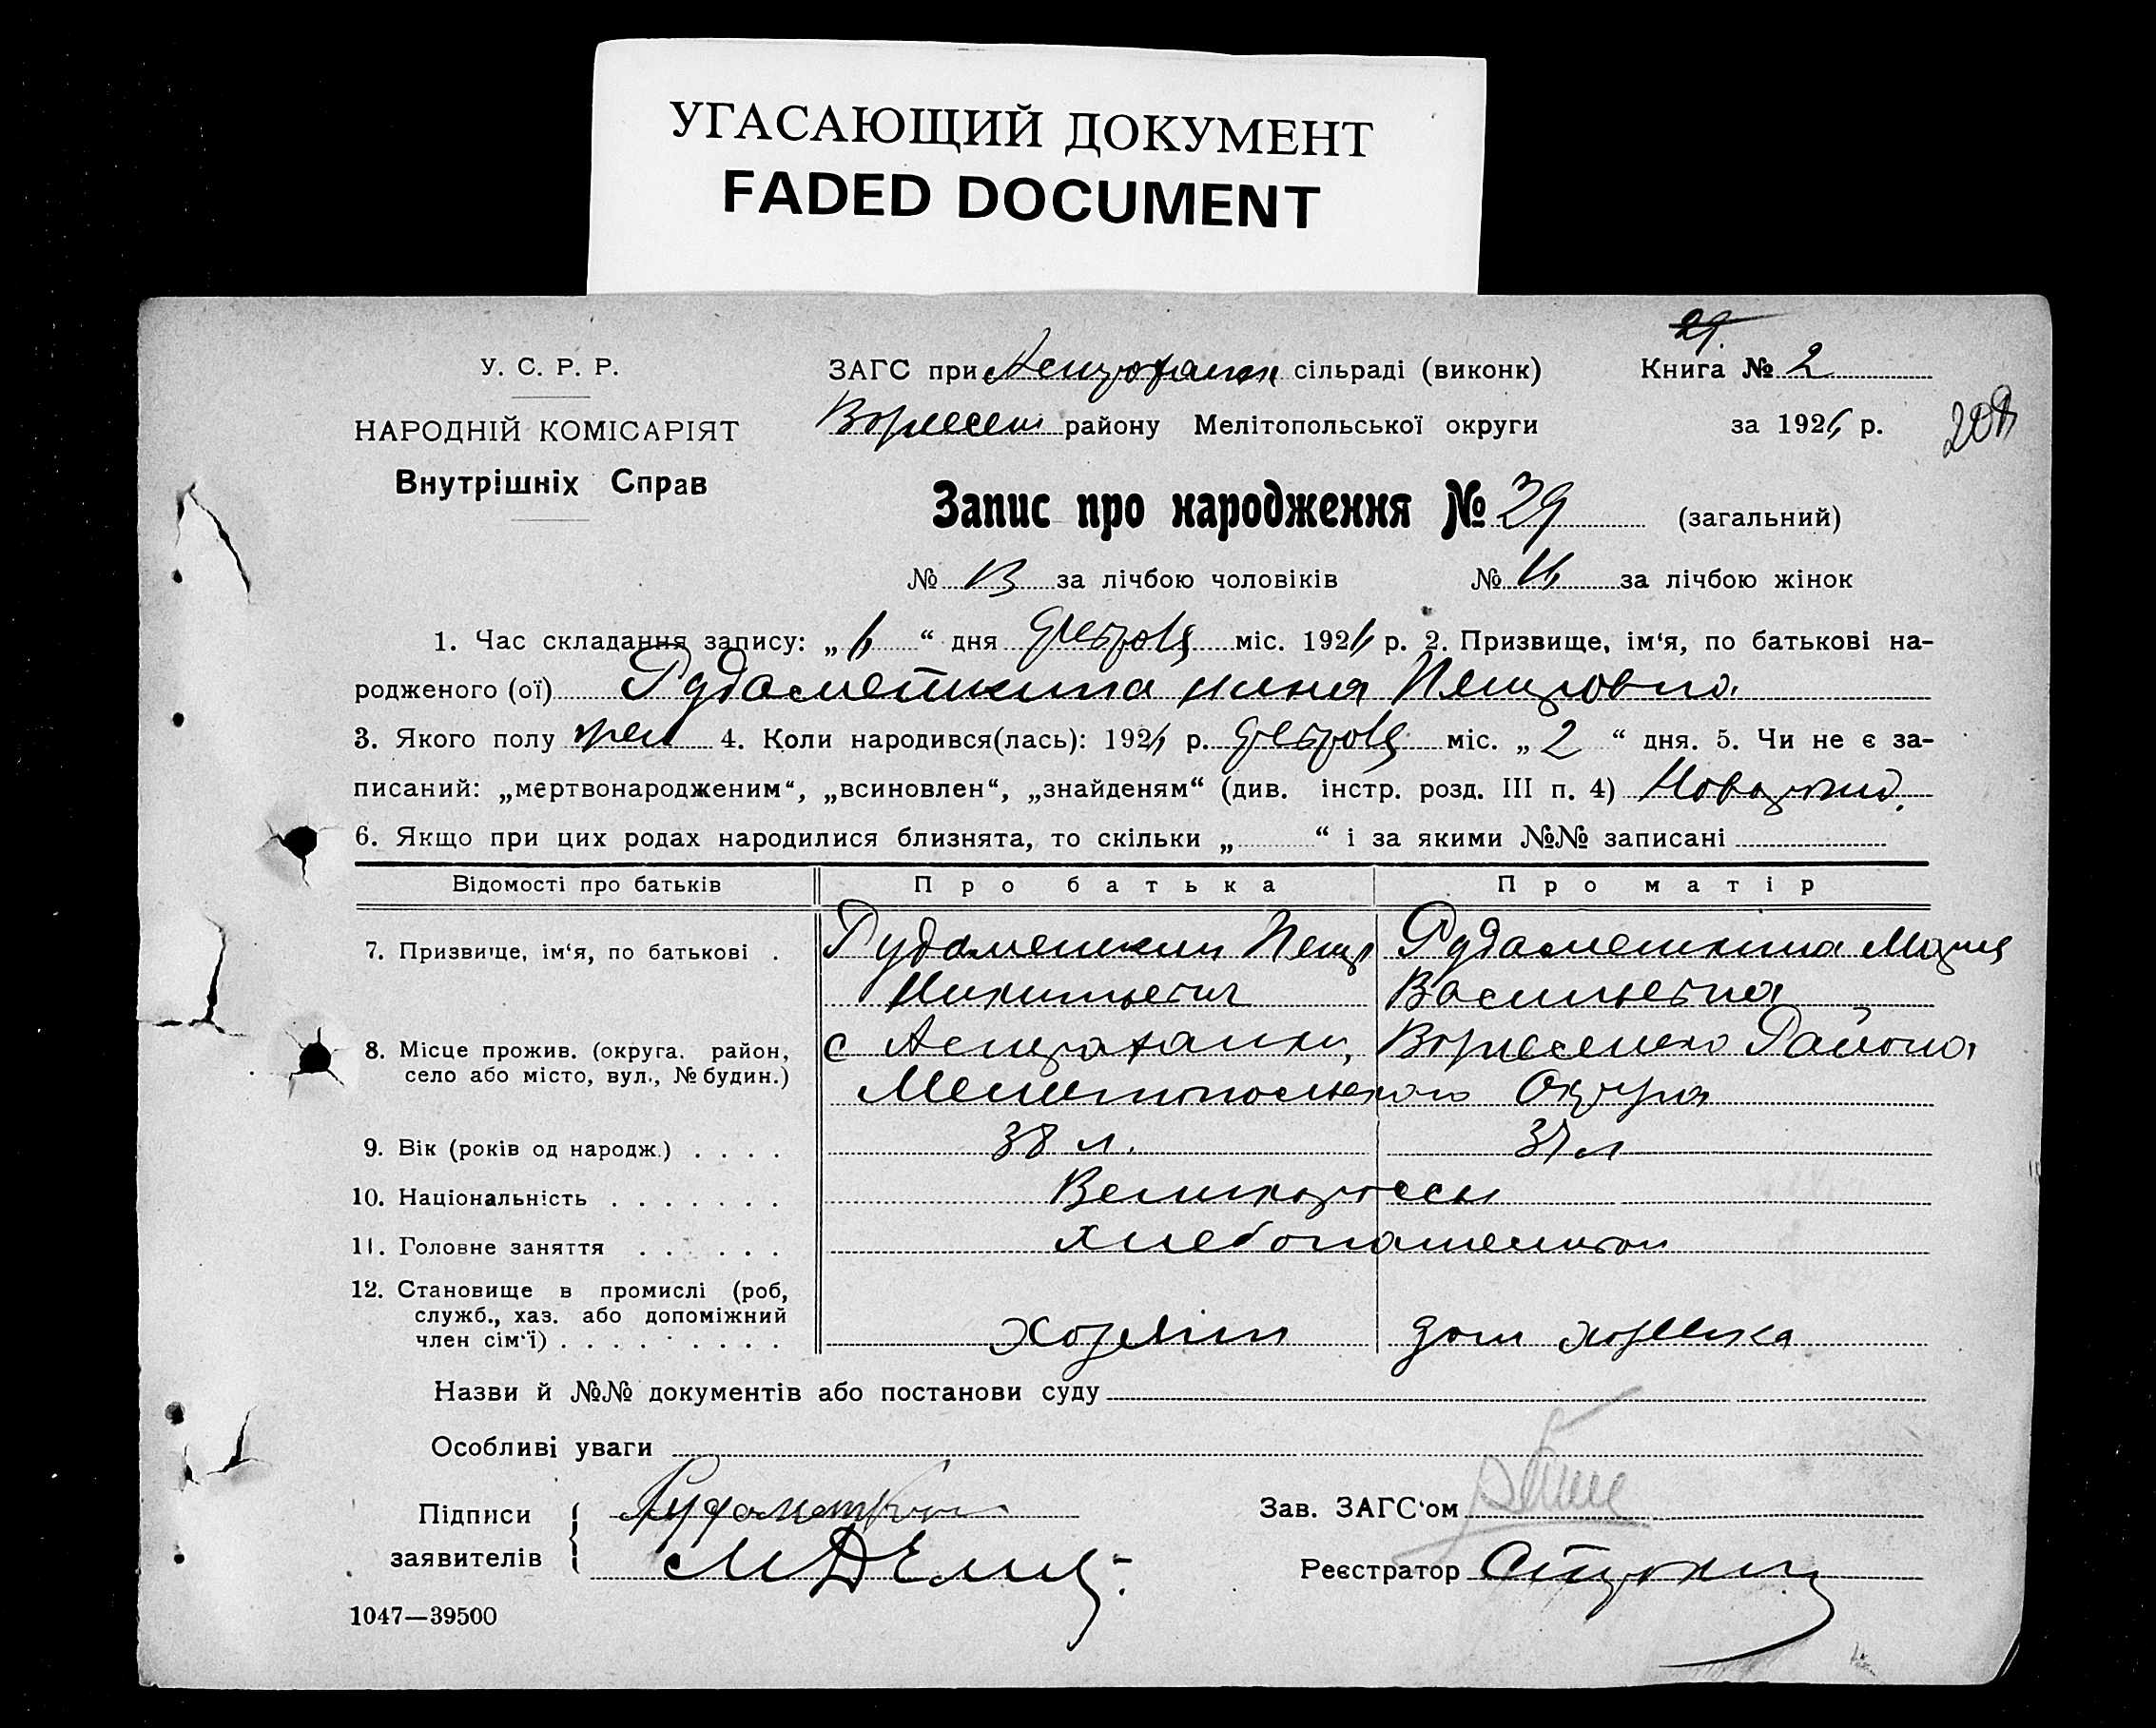 УГАСАЮЩИЙ ДОКУМЕНТ
FADED DOCUMENT
29
У. С. Р. Р.
ЗАГС при Астрахан сільраді (виконк)
Книга № 2
НАРОДНІЙ КОМІСАРІЯТ
Вознесен району Мелітопольської округи
за 1926 р.
Внутрішніх Справ
Запис про народження № 39 (загальний)
№ 13 за лічбою чоловіків № за лічбою жінок
1. Час складання запису: „6“ дня февраля міс. 1926 р. 2. Призвище, ім‘я, по батькові на-
родженого (ої) Рудаметкина Петровна
3. Якого полу жен 4. Коли народився(лась): 1926 р. февраля міс. „2“ дня. 5. Чи не є за-
писаний: „мертвонародженим“, „всиновлен“, „знайденям“ (див. інстр. розд. III п. 4) Новорожд.
6. Якщо при цих родах народилися близнята, то скільки „ “ і за якими №№ записані
Відомості про батьків Про батька Про матір
7. Призвище, ім‘я, по батькові . Рудаметкин Петр Рудаметкина Мария
Никитьевич Васильевна
8. Місце прожив. (округа. район, с Астраханки, Вознесенско Района
село або місто, вул., № будин.) Мелитопольского Округа
9. Вік (років од народж.) . . . . 38 л. 37 л
10. Національність . . . . . . . Великороссы
11. Головне заняття . . . . . . Хлебопашеством
12. Становище в промислі (роб,
служб., хаз. або допоміжний
член сім‘ї) . . . . . . . . Хозяин дом хозяйка
Назви й №№ документів або постанови суду
Особливі уваги
Підписи Рудаметкин Зав. ЗАГС‘ом
заявителів Реєстратор
1047—39500